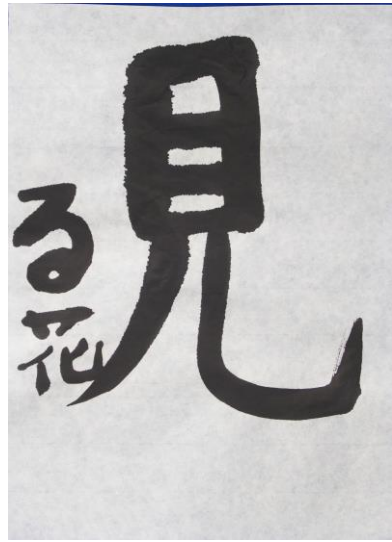 見
る花